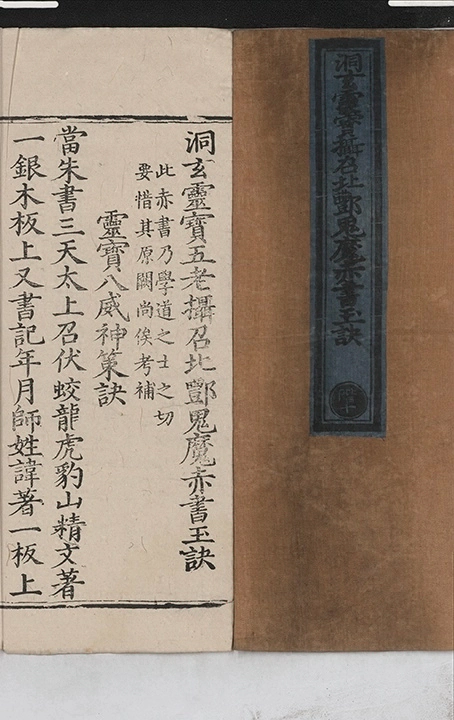 洞玄靈寶攝召北酆鬼魔赤書玉訣
洞玄靈寶五老攝召北酆鬼魔赤書玉訣
此赤書乃學道之士之切
要惜其原闕尚俟考補
靈寶八威神策訣
當朱書三天太上召伏蛟龍虎豹山精文著
一銀木板上又書記年月師姓諱著一板上